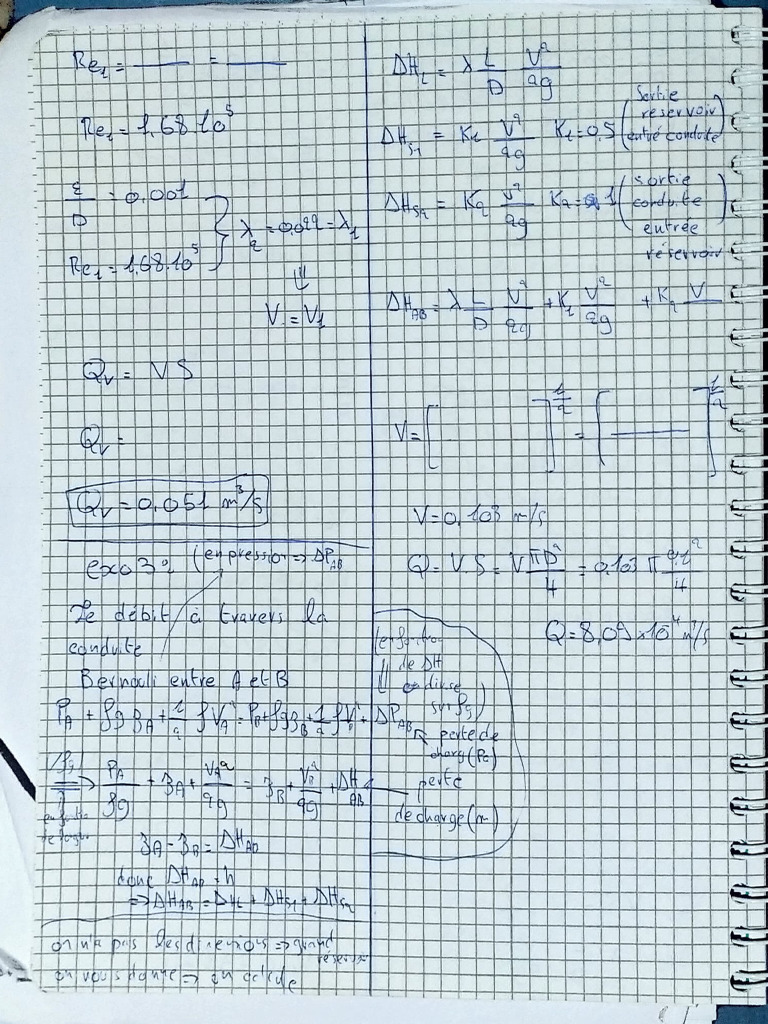 Re₁ = ____ = ____
Re₁ = 1,68·10⁵
ε/D = 0.001
Re₁ = 1,68·10⁵
λ₂ = 0.022 = λ₁
⇓
V = V₁
Qv = VS
Qv =
Qv = 0,051 m³/s
exo 3: (en pression ⇒ ΔP_AB
Le débit à travers la
conduite
Bernouli entre A et B
P_A + ρg z_A + 1/2 ρV_A² = P_B + ρg z_B + 1/2 ρV_B² + ΔP_AB
/ρg ⇒ P_A/ρg + z_A + V_A²/2g = z_B + V_B²/2g + ΔH_AB
z_A - z_B = ΔH_AB
donc ΔH_AB = h
⇒ ΔH_AB = ΔH_L + ΔH_S1 + ΔH_S2
on n'a pas les dimensions ⇒ grand
réservoir
on vous donne ⇒ on calcule
ΔH_L = λ L/D V²/2g
ΔH_S1 = K₁ V²/2g K₁ = 0,5 (Sortie
réservoir
entré conduite)
ΔH_S2 = K₂ V²/2g K₂ = 1 (sortie
conduite
entrée
réservoir)
ΔH_AB = λ L/D V²/2g + K₁ V²/2g + K₂ V
V = [ ]^1/2 = [ ____ ]^1/2
V = 0,103 m/s
Q = V.S = V πD²/4 = 0,103 π 0,1²/4
Q = 8,09×10⁻⁴ m³/s
de ΔH
⇓ on divise
sur ρg)
perte de
charg (Pa)
perte
de charge (m)